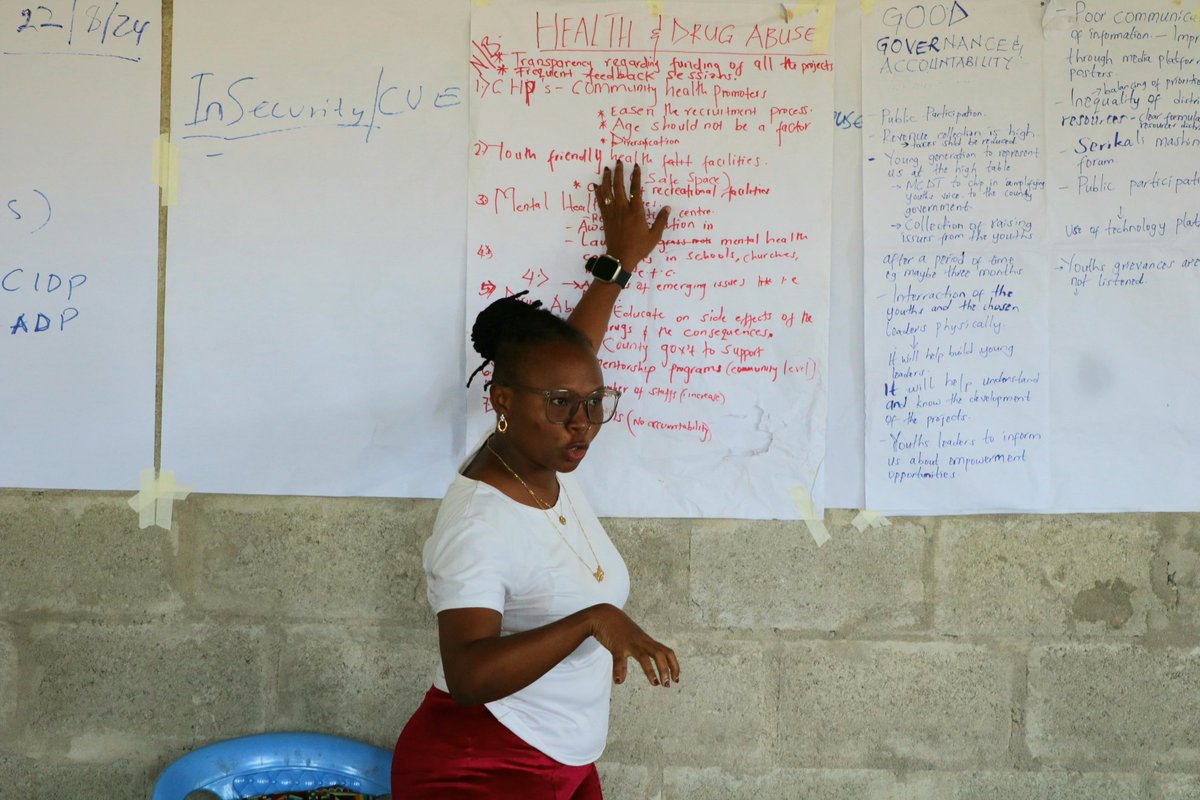 22/8/24
S)
CIDP
ADP
InSecurity/CVE
HEALTH & DRUG ABUSE
NB:
* Transparency regarding funding of all the projects
* frequent feedback sessions.
1) CHP's - Community health promoters
* Easen the recruitment process.
* Age should not be a factor
* Diversification
2) Youth friendly health facilities.
Safe Space)
recreational facilities
3) Mental Heal
centre.
- Awa in
- Lau mental health
4)
in schools, churches,
e.t.c.
5)
4) → of emerging issues like i.e
Educate on side effects of the
drugs & the consequences.
County gov't to support
mentorship programs (community level)
number of staffs (increase)
(No accountability)
USE
GOOD
GOVERNANCE &
ACCOUNTABILITY
- Public Participation.
- Revenue collection is high
↳ taxes shld be reduced.
- Young generation to represent
us at the high table
→ MCDT to chip in amplifying
youths voice to the county
government.
→ Collection of raising
issues from the youths
after a period of time
eg maybe three months
- Interraction of the
youths and the chosen
leaders physically.
It will help build young
leaders.
It will help understand
and know the development
of the projects.
- Youths leaders to inform
us about empowerment
opportunities
- Poor communic
of information. - Impr
through media platfor
posters.
↳ balancing of prioritie
- Inequality of dist
resources - clear formula
resources dist
- Serikali mashin
forum.
- Public participat
Use of technology plat
→ Youths grievances are
not listened.